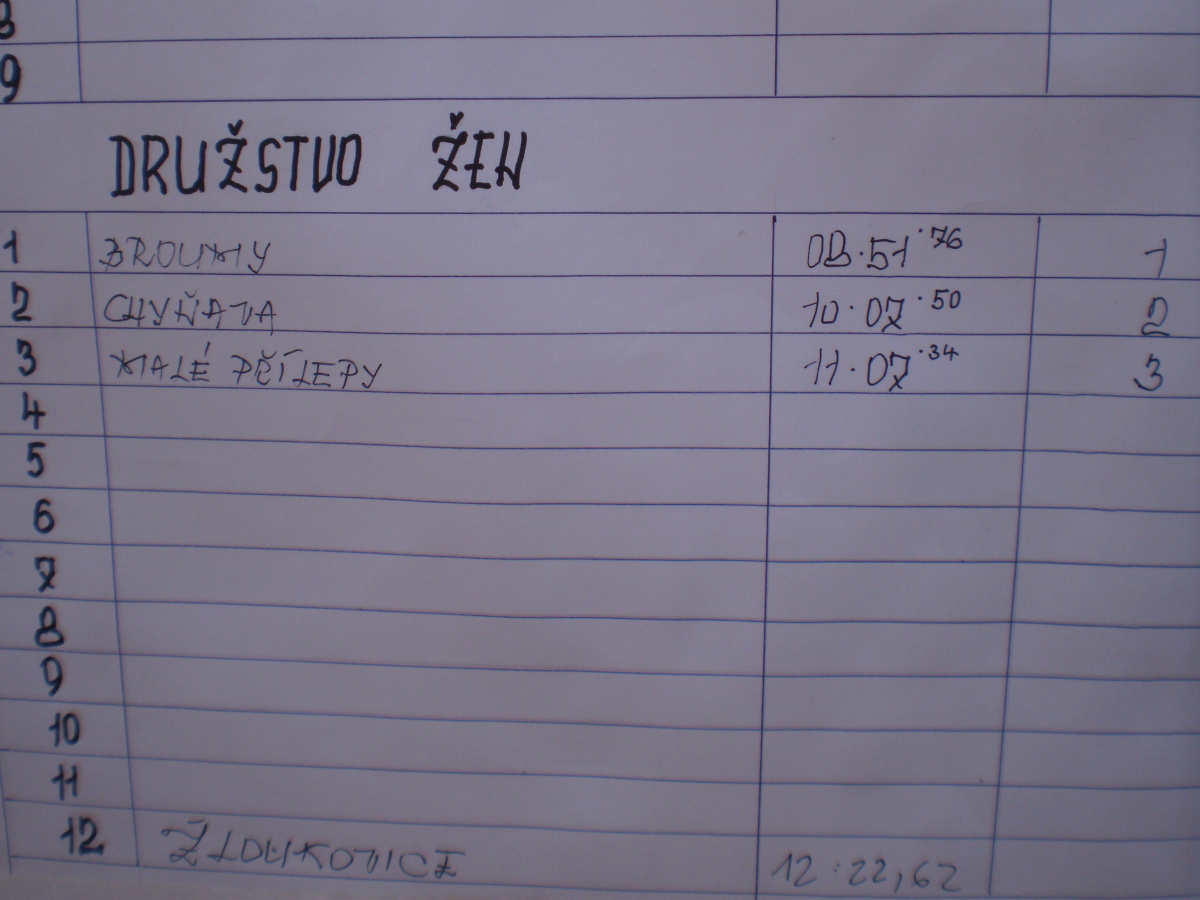 8
9
DRUŽSTVO ŽEN
1 BROUMY 08.51.76 1
2 CHYŇAVA 10.07.50 2
3 MALÉ PŘÍLEPY 11.07.34 3
4
5
6
7
8
9
10
11
12 ŽLOUKOVICE 12:22,62